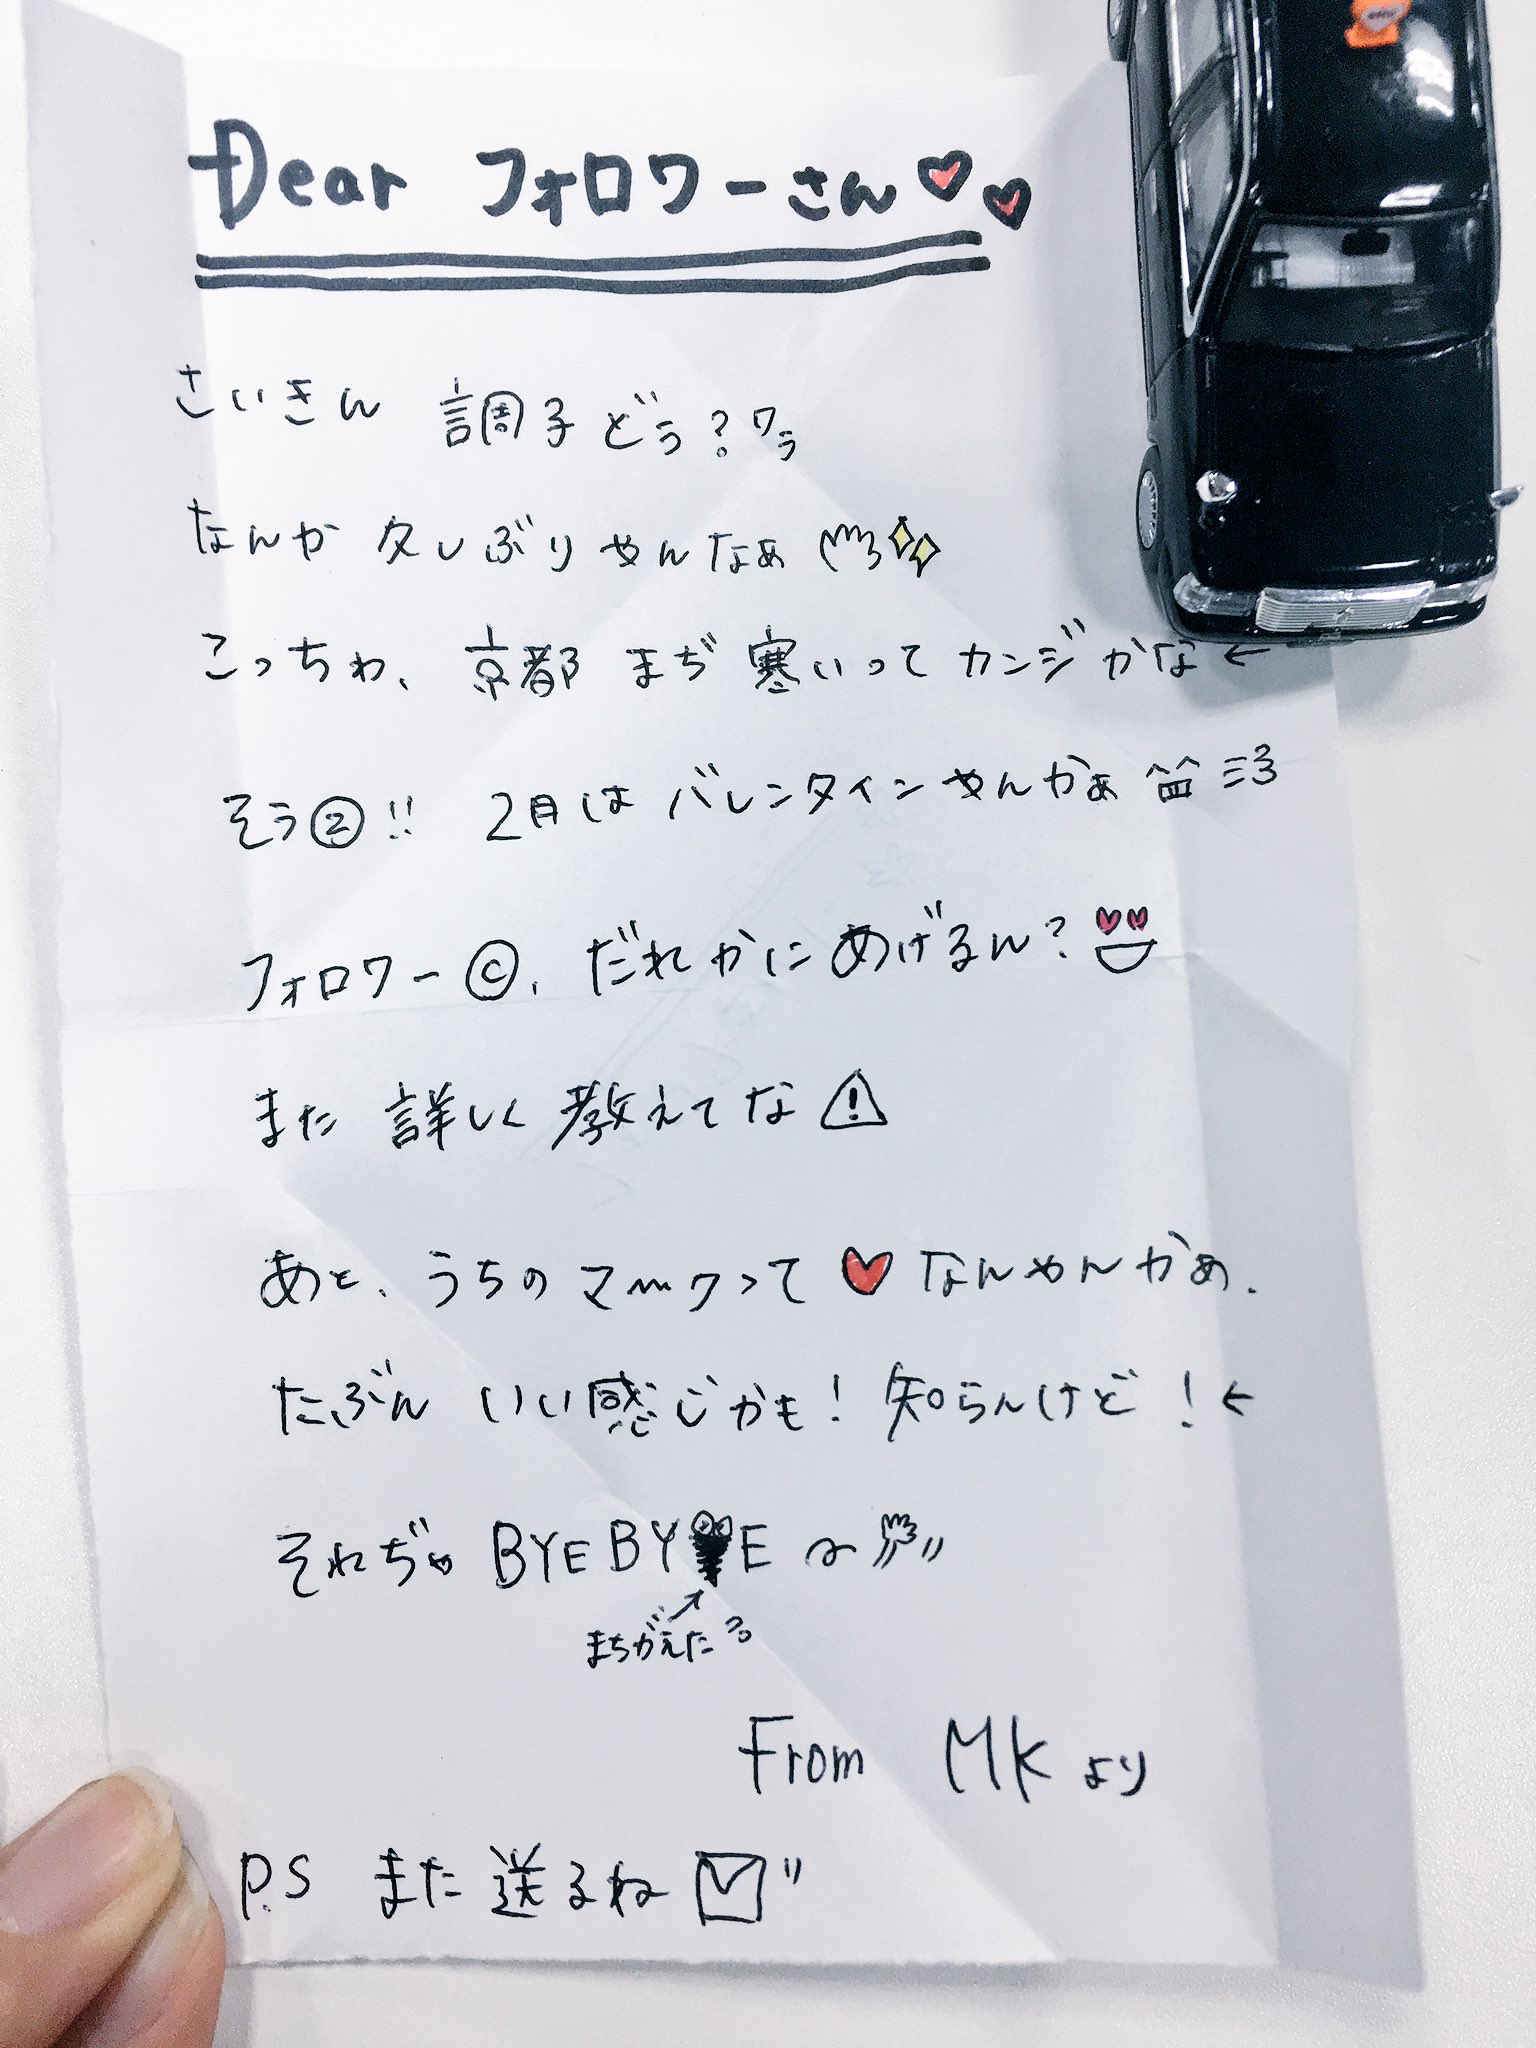 Dear フォロワーさん♥♥
さいきん 調子どう？ワラ
なんか 久しぶりやんなぁ
こっちわ、京都 まぢ寒いってカンジかな←
そう②!! 2月は バレンタインやんかぁ
フォロワーⓒ、だれかにあげるん？
また 詳しく 教えてな⚠
あと、うちのマークって♥なんやんかぁ。
たぶん いい感じかも！知らんけど！←
それぢゃ BYE BYE 〜
まちがえた
From MKより
P.S また送るね